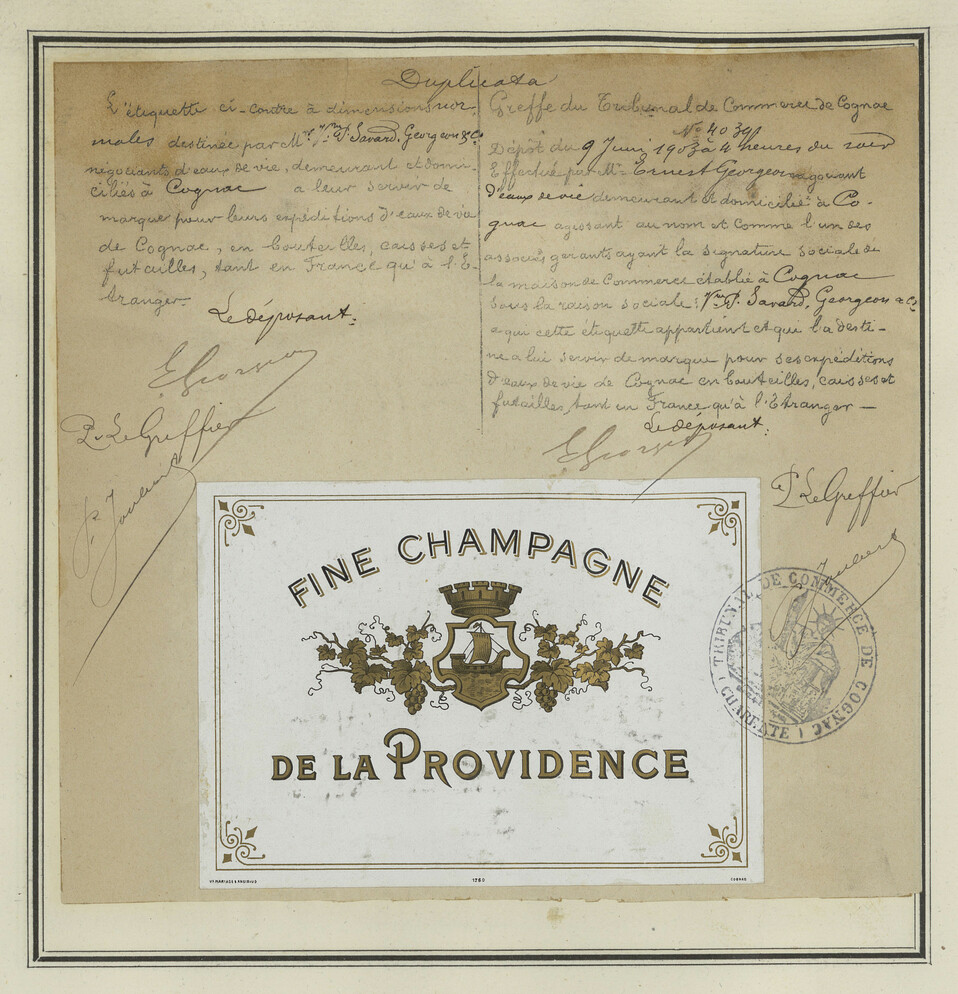 Duplicata
L'étiquette ci-contre à dimensions nor-
males destinée par Mrs Vve P. Savard, Georgeon & Co
négociants d'eaux de vie, demeurant et domi-
ciliés à Cognac a leur servir de
marque pour leurs expéditions d'eaux de vie
de Cognac, en bouteilles, caisses et
futailles, tant en France qu'à l'E-
tranger.
Le déposant:
E Georgeon
P. Le Greffier
P. Joubert
Greffe du Tribunal de Commerce de Cognac
No 4039
Dépôt du 9 Juin 1903 à 4 heures du soir
Effectué par Mr Ernest Georgeon négociant
d'eaux de vie demeurant et domicilié à Co-
gnac agissant au nom et comme l'un des
associés gérants ayant la signature sociale de
la maison de Commerce établie à Cognac
sous la raison sociale: Vve P. Savard, Georgeon & Co
a qui cette étiquette appartient et qui la desti-
ne a lui servir de marque pour ses expéditions
d'eaux de vie de Cognac en bouteilles, caisses et
futailles, tant en France qu'à l'Etranger —
Le déposant:
E Georgeon
P. Le Greffier
Joubert
FINE CHAMPAGNE
DE LA PROVIDENCE
1260
COGNAC
TRIBUNAL DE COMMERCE DE COGNAC
(CHARENTE)